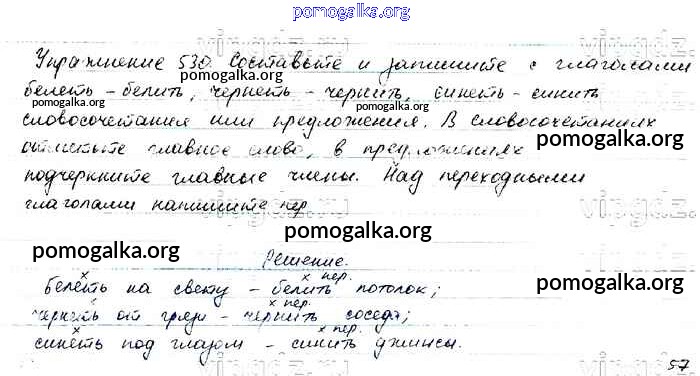 pomogalka.org
Упражнение 530. Составьте и запишите с глаголами
pomogalka.org
белеть - белить, чернеть - чернить, синеть - синить
pomogalka.org
словосочетания или предложения. В словосочетаниях
pomogalka.org
отметьте главное слово, в предложениях
pomogalka.org
подчеркните главные члены. Над переходными
глаголами напишите пер
pomogalka.org
pomogalka.org
Решение.
х х пер.
белеть на свету - белить потолок;
pomogalka.org
х х пер.
чернеть от грязи - чернить соседа;
х х пер.
синеть под глазом - синить джинсы.
57